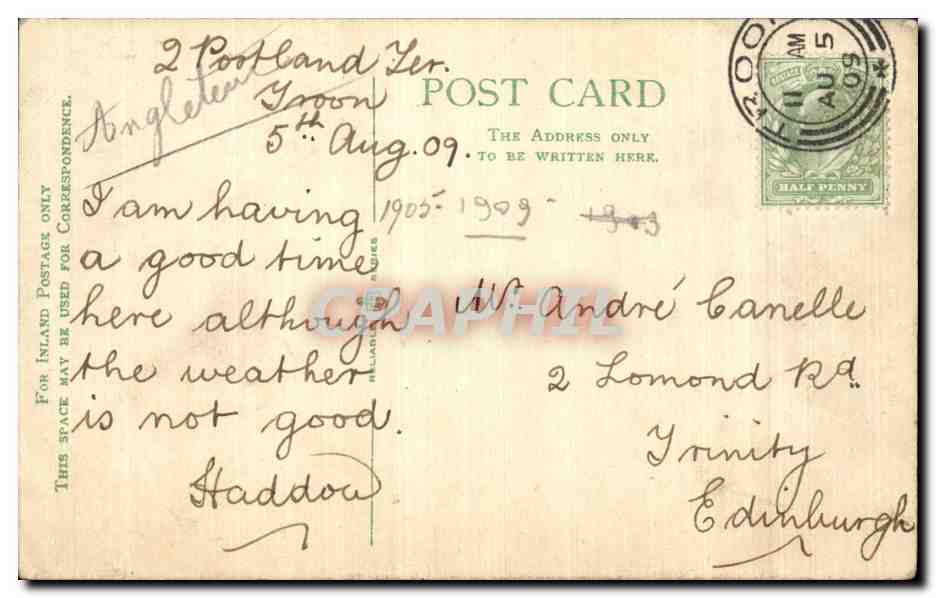 2 Portland Ter.
Troon
5th Aug. 09.
I am having
a good time
here although
the weather
is not good.
Haddow
POST CARD
THE ADDRESS ONLY
TO BE WRITTEN HERE.
FOR INLAND POSTAGE ONLY
THIS SPACE MAY BE USED FOR CORRESPONDENCE.
1905- 1909- 1903
Mr. André Canelle
2 Lomond Rd.
Trinity
Edinburgh
TROON
11 AM
AU 5
09
POSTAGE
HALF PENNY
SERIES
RELIABLE
CPAPHIL